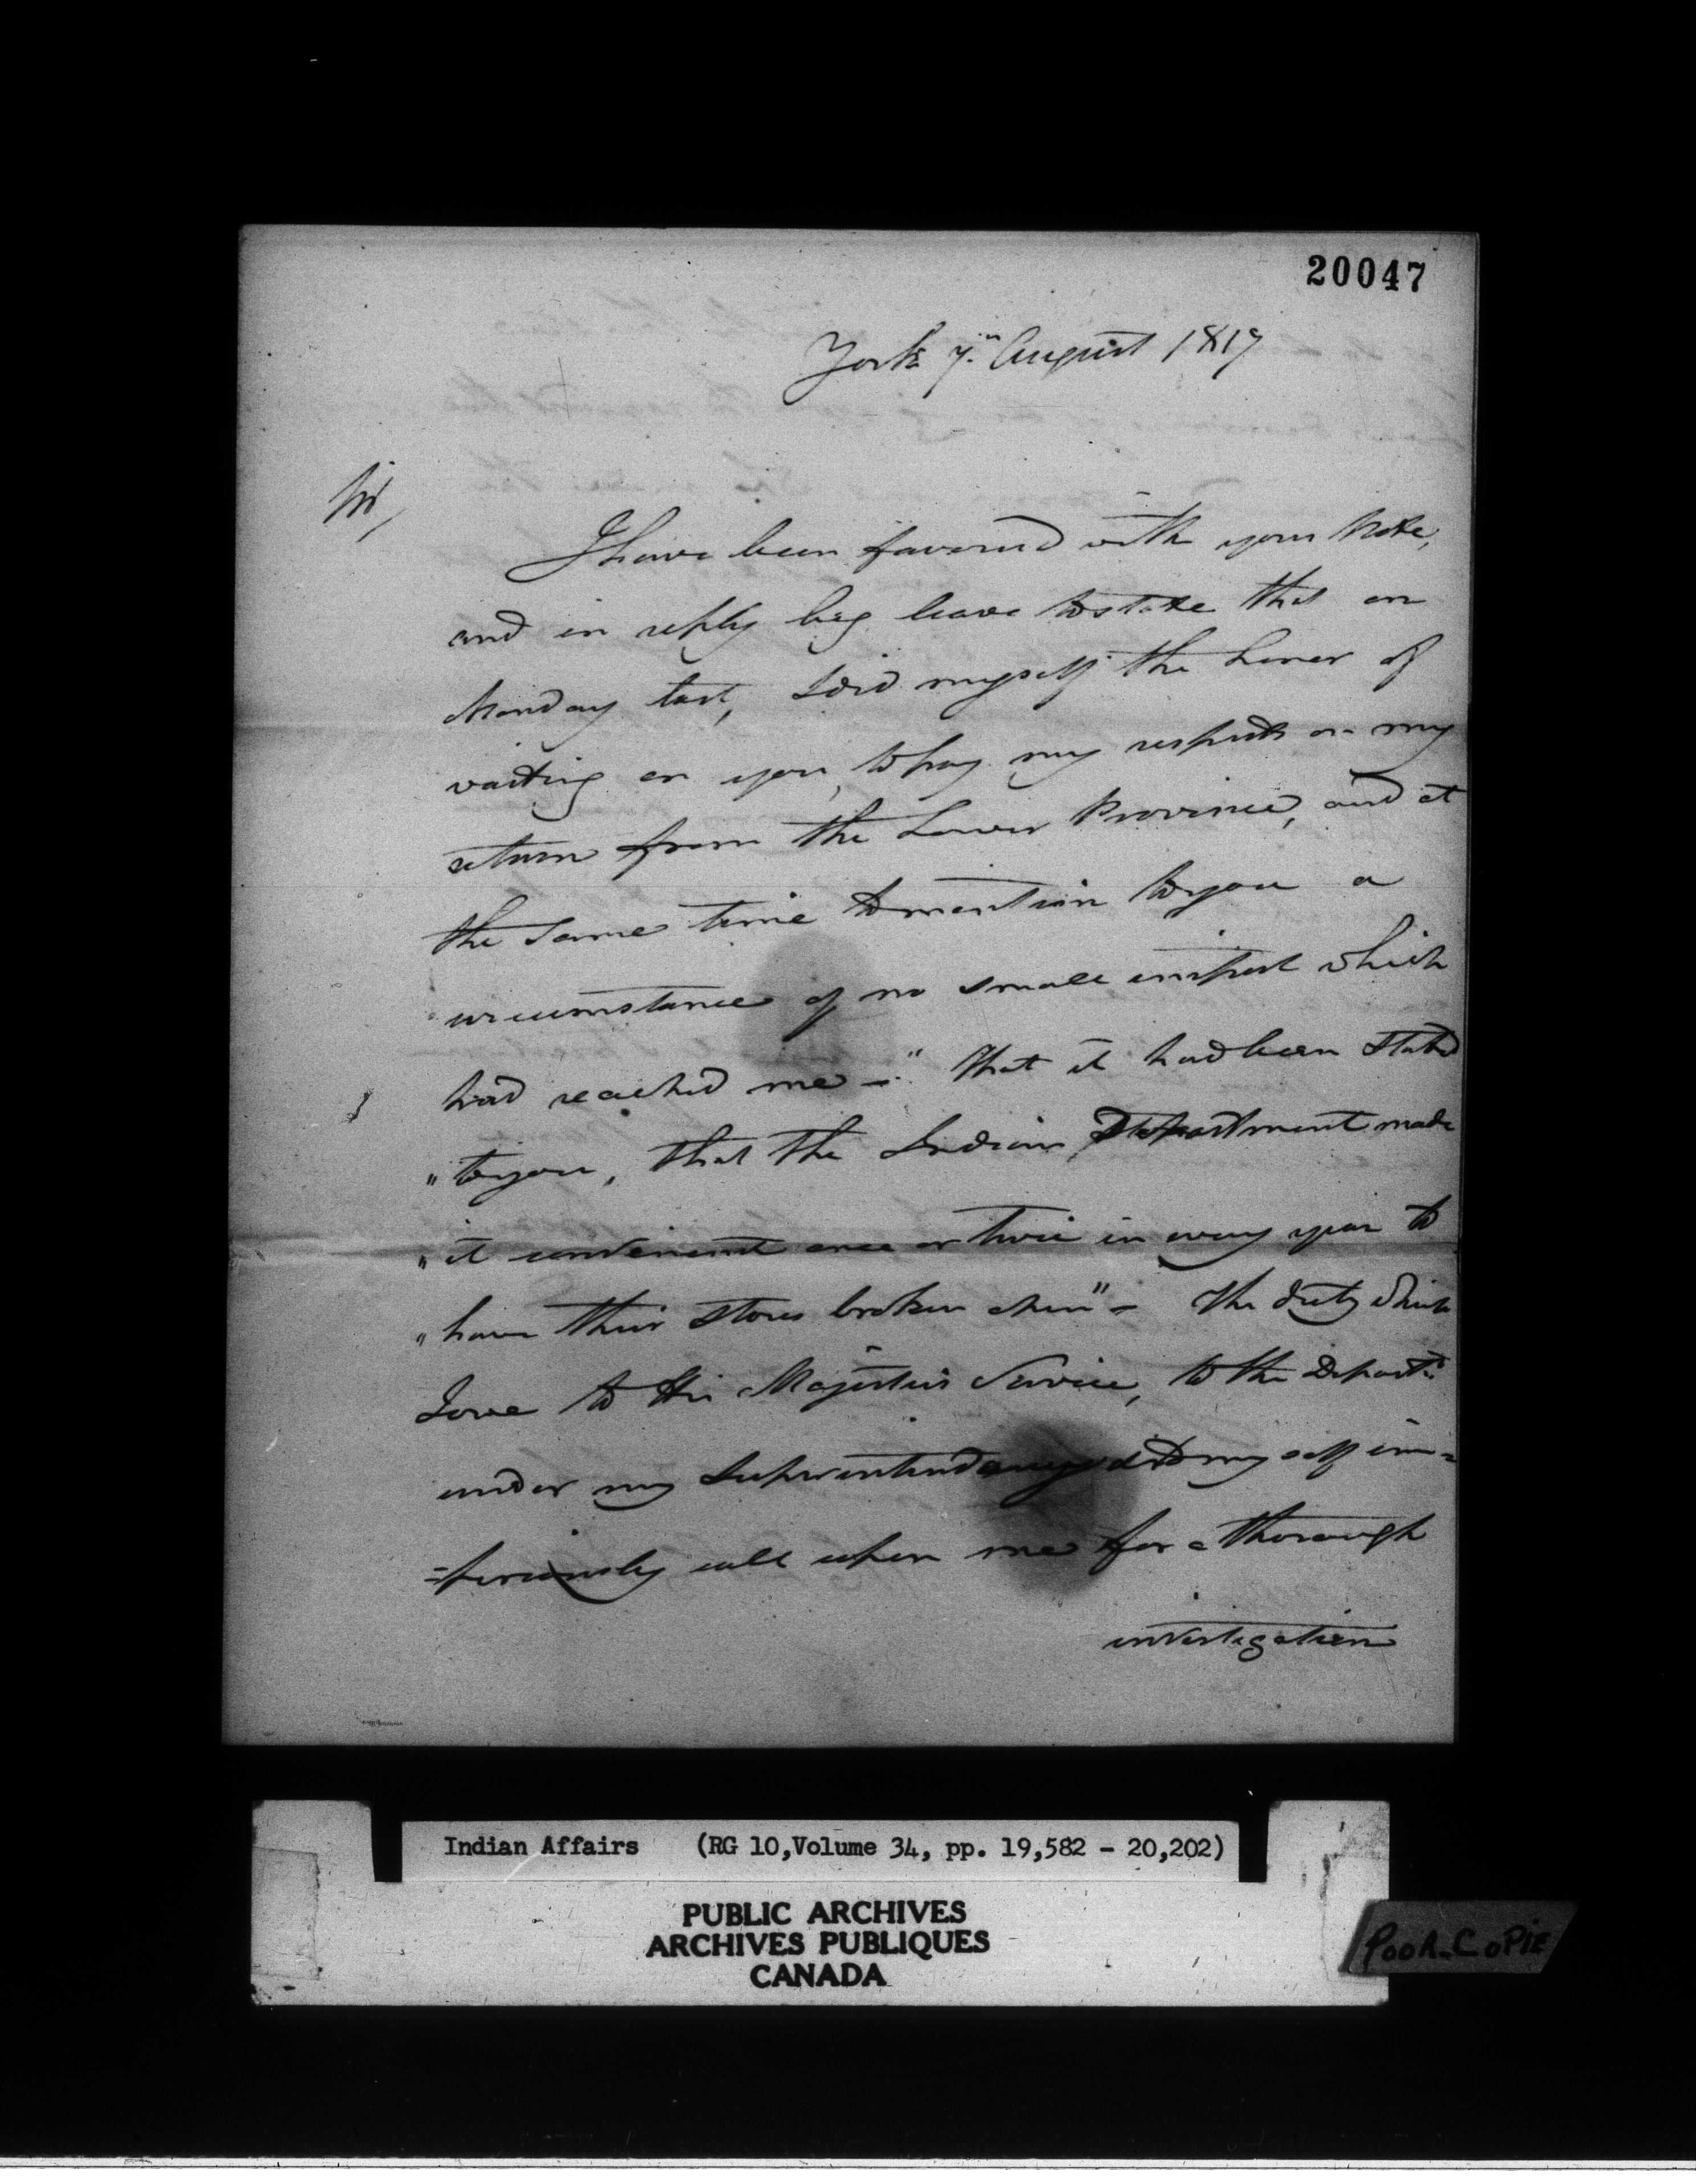 20047
York 7th August 1817
Sir,
I have been favored with your Note,
and in reply beg leave to state that on
Monday last, I did myself the honor of
waiting on you, to pay my respects on my
return from the Lower Province, and at
the same time to mention to you a
circumstance of no small import which
had reached me —" That it had been stated
" to you, that the Indian Department made
" it convenient once or twice in every year to
" have their stores broken open" – The duty which
I owe to His Majesties Service, to the Departt
under my Superintendancy and myself im=
=periously call upon me for a thorough
investigation
Indian Affairs (RG 10, Volume 34, pp. 19,582 - 20,202)
PUBLIC ARCHIVES
ARCHIVES PUBLIQUES
CANADA
POOR_COPIE